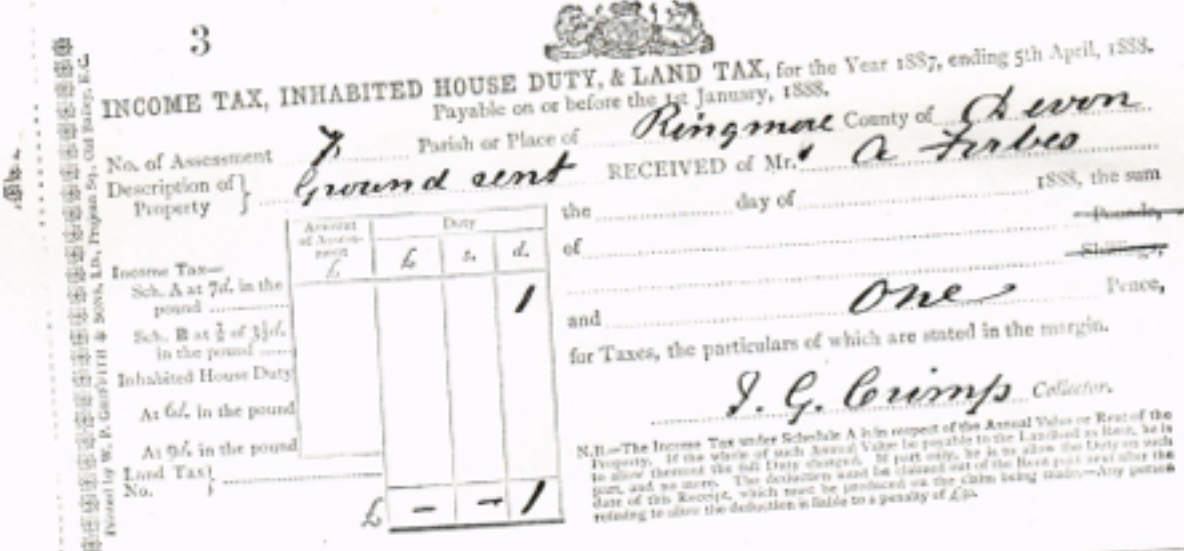 3
INCOME TAX, INHABITED HOUSE DUTY, & LAND TAX, for the Year 1887, ending 5th April, 1888.
Payable on or before the 1st January, 1888.
No. of Assessment 7 Parish or Place of Ringmore County of Devon
Description of Property } Ground rent RECEIVED of Mr. A Forbes
the day of 1888, the sum
of Pounds,
Shillings,
and One Pence,
for Taxes, the particulars of which are stated in the margin.
J. G. Crimp Collector.
Amount of Assessment £ Duty
£ s. d.
Income Tax—
Sch. A at 7d. in the pound 1
Sch. B at ½ of 3½d. in the pound
Inhabited House Duty
At 6d. in the pound
At 9d. in the pound
Land Tax }
No.
£ – – 1
N.B.—The Income Tax under Schedule A is in respect of the Annual Value or Rent of the
Property. If the whole of such Annual Value be payable to the Landlord as Rent, he is
to allow thereout the full Duty charged. If part only, he is to allow the Duty on such
part, and no more. The deduction must be claimed out of the Rent paid next after the
date of this Receipt, which must be produced on the claim being made.—Any person
refusing to allow the deduction is liable to a penalty of £50.
Printed by W. P. GRIFFITH & SONS, LD., Prujean Sq., Old Bailey, E.C.